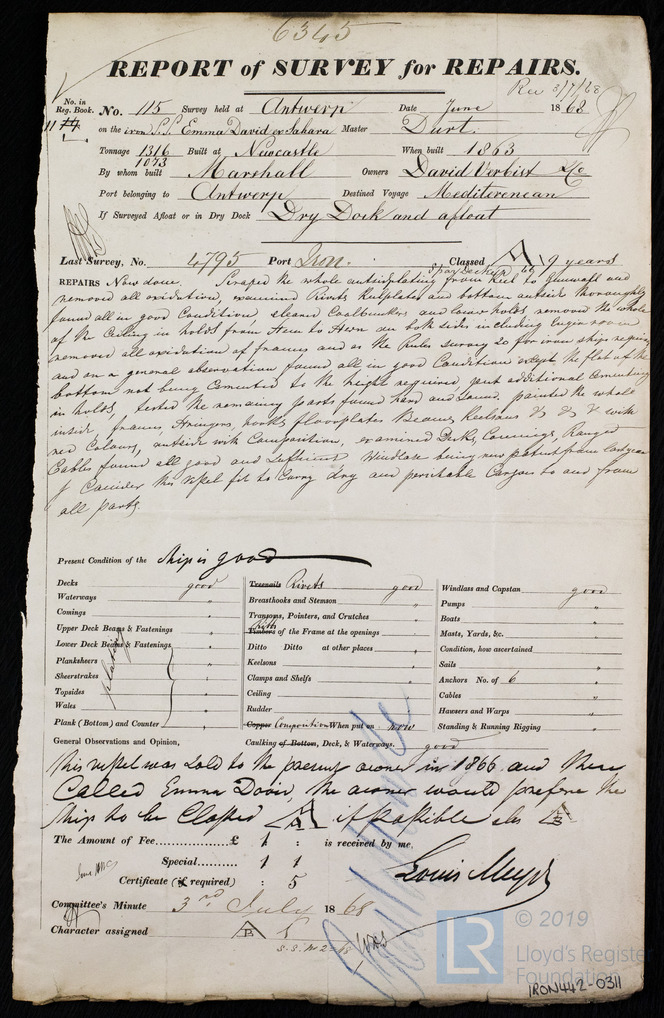 6345
REPORT of SURVEY for REPAIRS.
Rec 3/7/68
No. in Reg. Book. No. 115 Survey held at Antwerp Date June 1868
on the iron S.S. Emma David or Sahara Master Durt.
Tonnage 1316 Built at Newcastle When built 1863
1073
By whom built Marshall Owners David Verbist & Co
Port belonging to Antwerp Destined Voyage Mediterenean
If Surveyed Afloat or in Dry Dock Dry Dock and afloat
Last Survey, No. 4795 Port Iron. Classed A 9 years
Spar Decked
REPAIRS Now done. Scraped the whole outsideplating from Keel to Gunwalt and
removed all oxidation, examined Rivets Keelplates and bottom outside thoroughly
found all in good Condition, cleaned Coalbunkers and lower holds removed the whole
of the Ceiling in holds from Stem to Stern on both sides including Engineroom
removed all oxidation of frames and as the Rules survey 20 for iron ships require
and on a general observation found all in good Condition except the flat of the
bottom not being Cemented to the height required, put additional Cementing
in holds, tested the remaining parts found hard and sound. painted the whole
inside frames, stringers, hooks floorplates Beams Keelsons & & & with
red Colour, outside with Composition, examined Decks, Comings, Ranged
Cables found all good and sufficient Windlass being new patent from last year
I Consider this Vessel fit to Carry dry and perishable Cargoes to and from
all parts.
Present Condition of the Ship is good
Decks good
Waterways "
Comings "
Upper Deck Beams & Fastenings "
Lower Deck Beams & Fastenings "
Planksheers "
Sheerstrakes "
Topsides "
Wales "
Plank (Bottom) and Counter "
plating
Treenails Rivets good
Breasthooks and Stemson "
Transoms, Pointers, and Crutches "
Ribbs
Timbers of the Frame at the openings "
Ditto Ditto at other places "
Keelsons "
Clamps and Shelfs "
Ceiling "
Rudder "
Copper Composition When put on now
Caulking of Bottom, Deck, & Waterways. good
Windlass and Capstan good
Pumps "
Boats "
Masts, Yards, &c. "
Condition, how ascertained
Sails "
Anchors No. of 6 "
Cables "
Hawsers and Warps "
Standing & Running Rigging "
General Observations and Opinion,
this vessel was sold to the present owner in 1866 and then
Called Emma David, the owner would prefere the
Ship to be Classed A if possible els B
The Amount of Fee £ 1 : is received by me,
Special 1 1
Certificate (if required) : 5
Louis Meyer
Committee's Minute 3rd July 1868
Character assigned
© 2019
LR
Lloyd's Register
Foundation
IRON442-0311